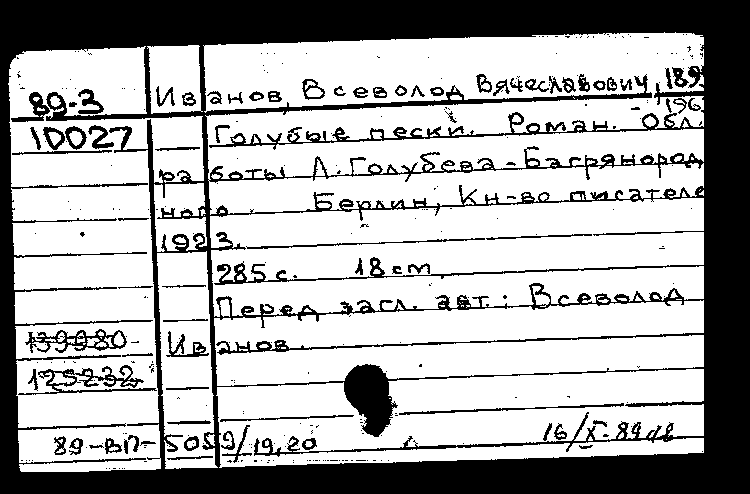 89-3 Иванов, Всеволод Вячеславович, 189
- 196
10027 Голубые пески. Роман. Обл.
работы Л. Голубева-Багрянород
ного Берлин, Кн-во писателе
1923.
285 с. 18 cm.
Перед загл. авт.: Всеволод
139980 Иванов.
125232
89-ВП-5059/19,20 16/X-89